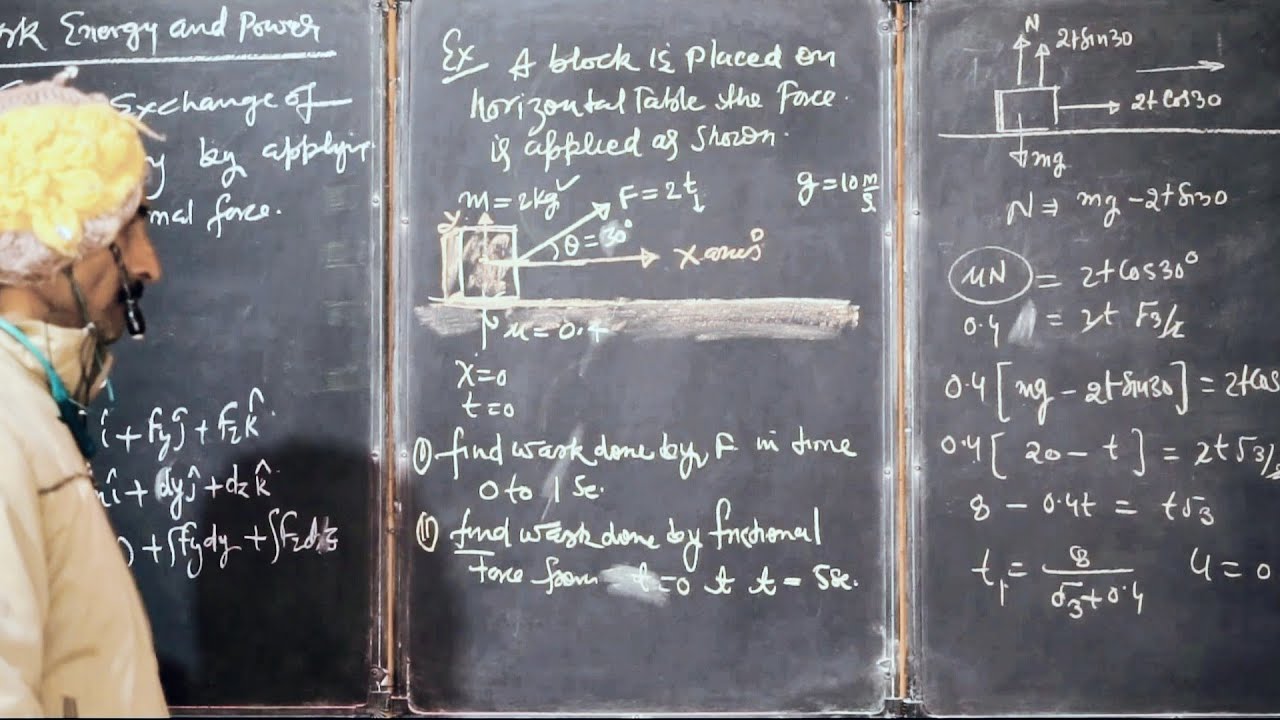 Energy and Power
Exchange of
by applying
force.
î + Fyĵ + Fzk̂
î + dyĵ + dzk̂
+ ∫Fydy + ∫Fzdz
Ex A block is placed on
horizontal Table the force.
is applied as shown.
m = 2kg F = 2t g = 10 m/s
y θ = 30° X axis
μ = 0.4
x = 0
t = 0
(i) find work done by F in time
0 to 1 Sc.
(ii) find work done by frictional
force from t = 0 t t = 5 Sc.
N 2tSin30
2tCos30
mg
N ⇒ mg - 2tSin30
μN = 2tCos30°
0.4 = 2t √3/2
0.4 [mg - 2tSin30] = 2tCos
0.4 [20 - t] = 2t√3/2
8 - 0.4t = t√3
t₁ = 8/(√3 + 0.4) u = 0